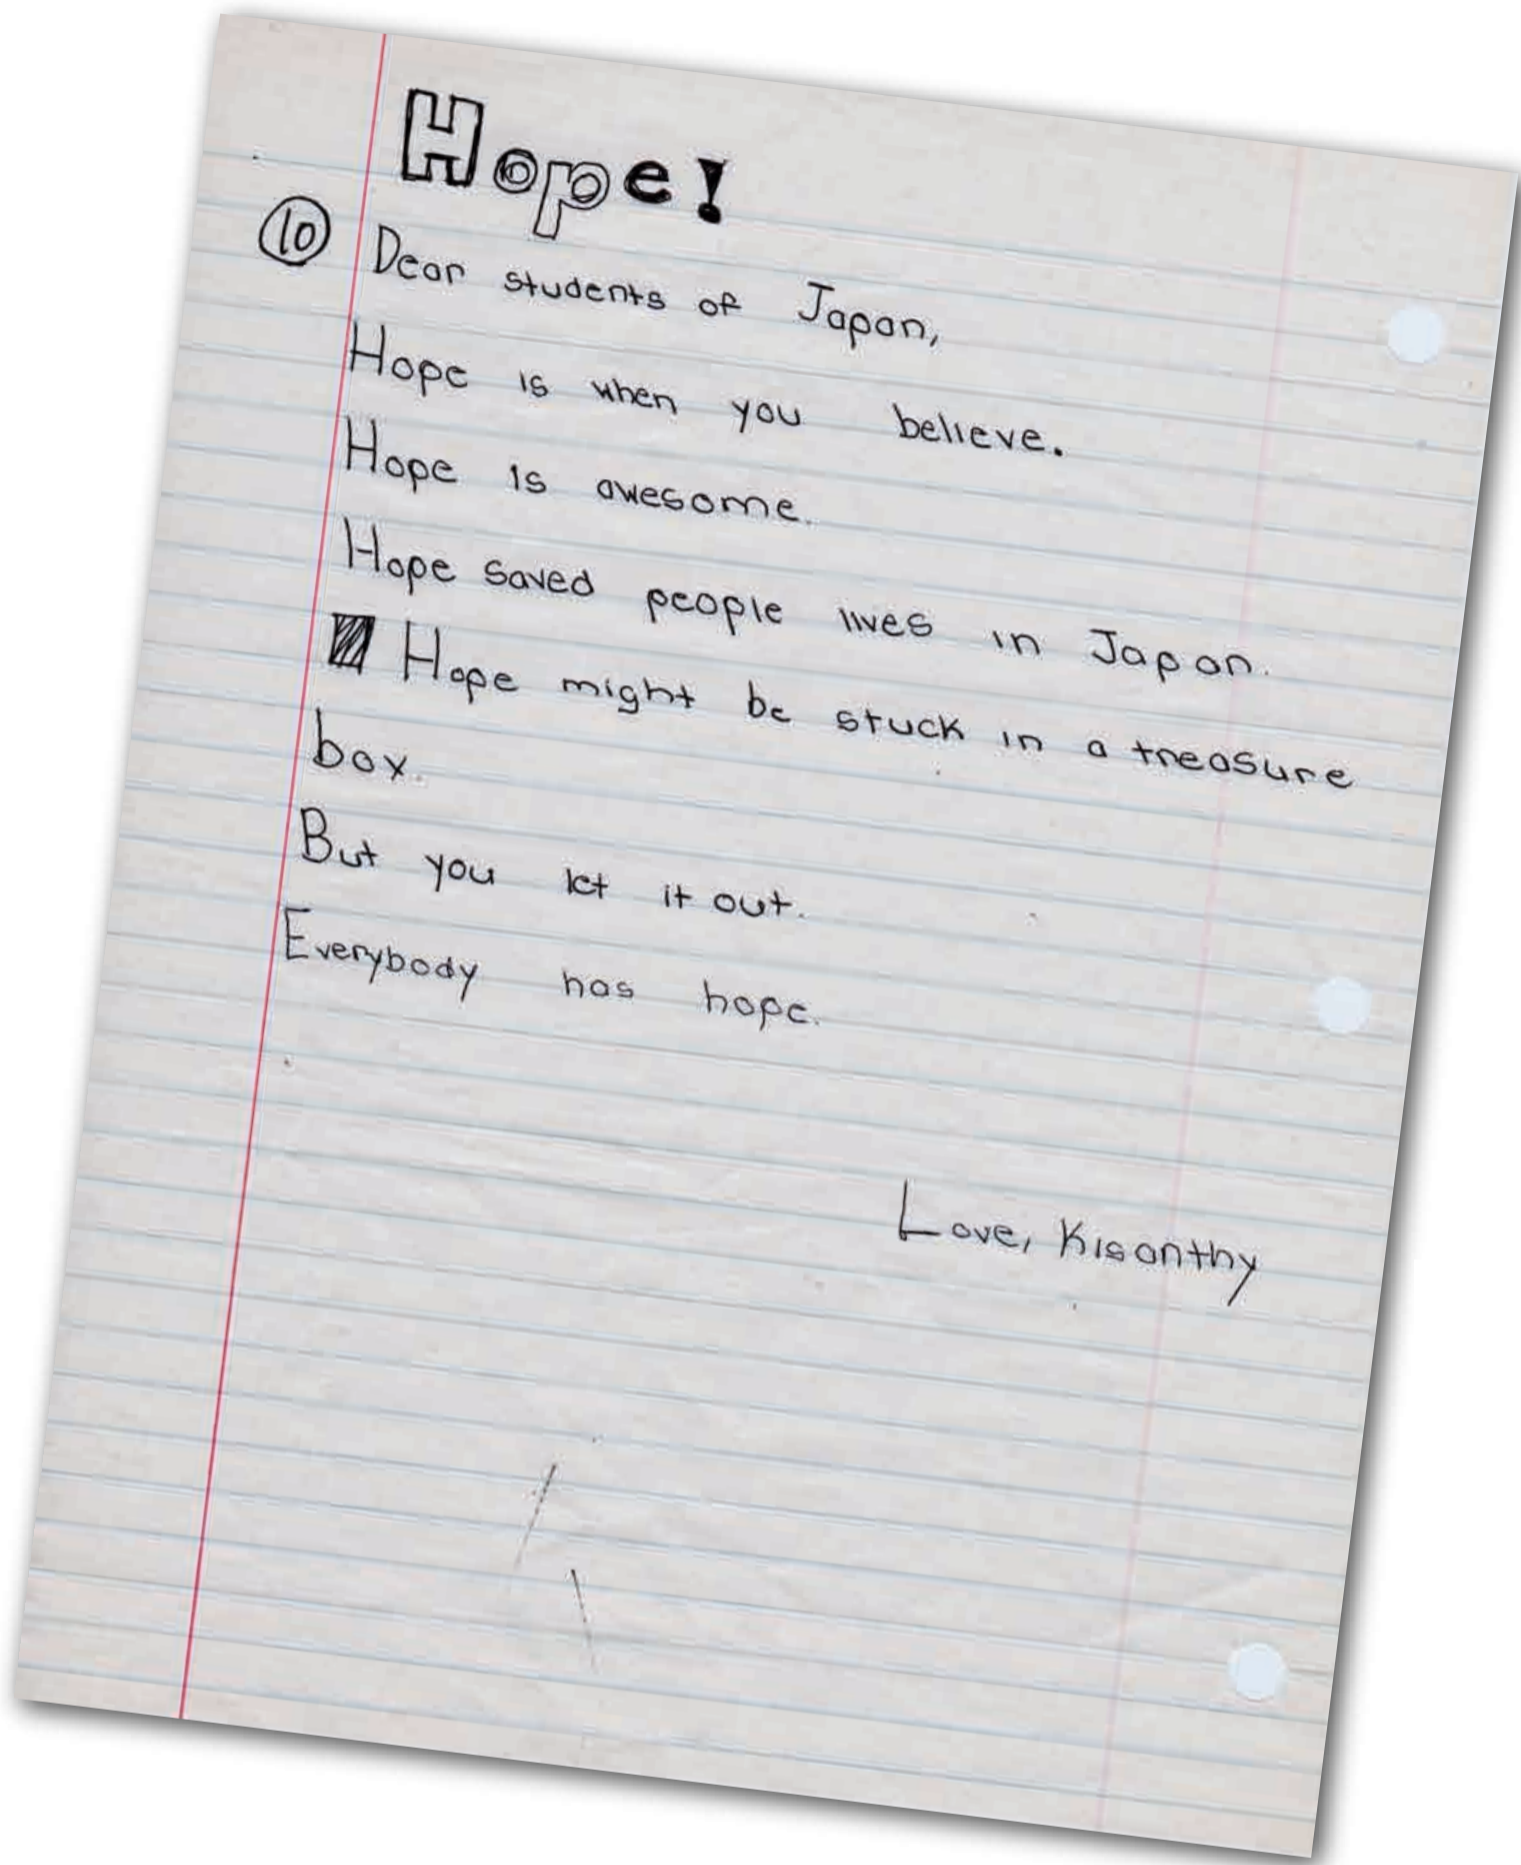 Hope!
10 Dear students of Japan,
Hope is when you believe.
Hope is awesome.
Hope saved people lives in Japan.
Hope might be stuck in a treasure
box.
But you let it out.
Everybody has hope.
Love, Kisanthy